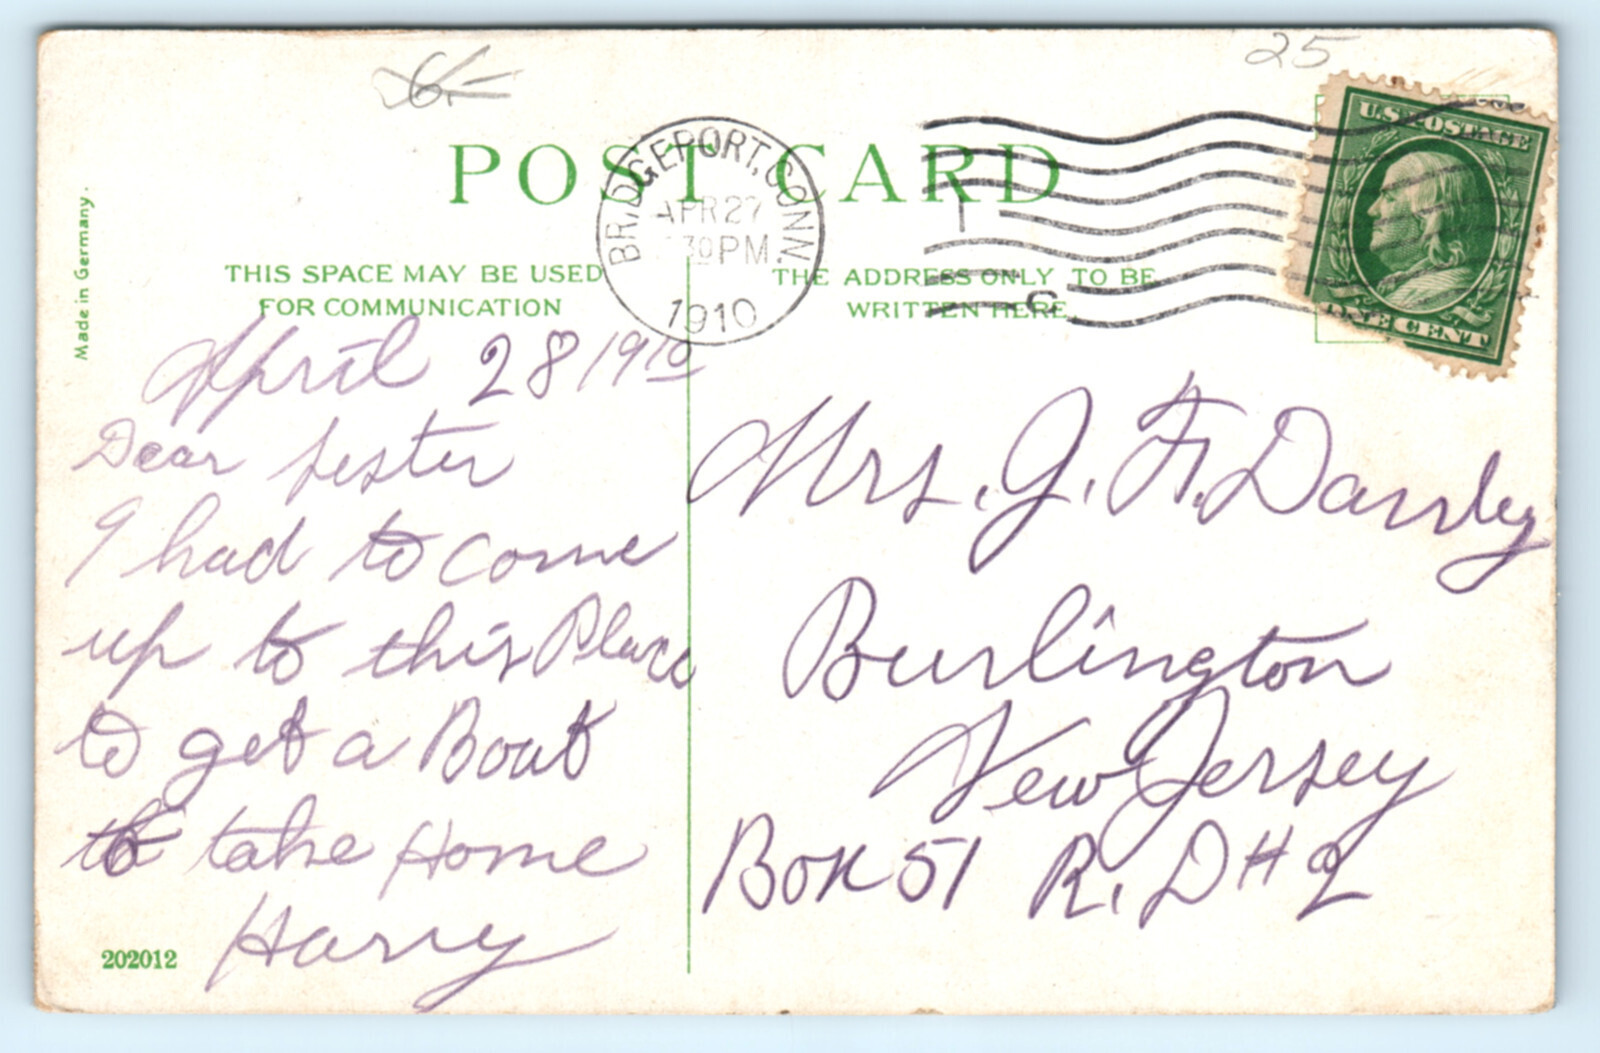 6.-
25
POST CARD
BRIDGEPORT, CONN.
APR 27
30 PM
1910
U.S. POSTAGE
ONE CENT
Made in Germany.
THIS SPACE MAY BE USED
FOR COMMUNICATION
THE ADDRESS ONLY TO BE
WRITTEN HERE
April 28 1910
Dear Sister
I had to come
up to this Place
to get a Boat
to take Home
Harry
202012
Mrs. J. F.
Burlington
New Jersey
Box 51 R. D # 2